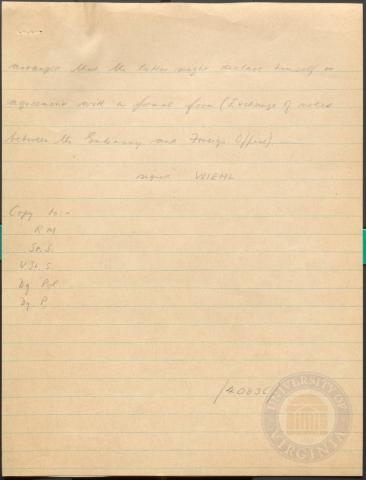 arranged that the latter might declare himself in
agreement with a formal form (Exchange of notes
between the Embassy and Foreign Office).
signed WIEHL
Copy to:-
R M
St. S.
U St. S.
Dg Pol.
Dg P.
UNIVERSITY OF
VIRGINIA